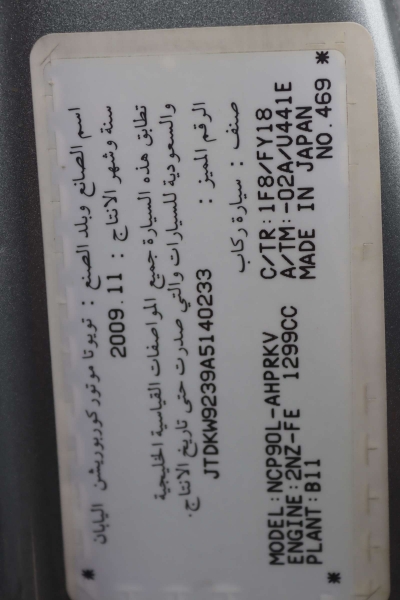 اسم الصانع وبلد الصنع : تويوتا موتور كوربوريشن اليابان
سنة وشهر الانتاج : 2009.11
تطابق هذه السيارة جميع المواصفات القياسية الخليجية
والسعودية للسيارات والتي صدرت حتى تاريخ الانتاج.
الرقم المميز : JTDKW9239A5140233
صنف : سيارة ركاب
MODEL:NCP90L-AHPRKV C/TR:1F8/FY18
ENGINE:2NZ-FE 1299CC A/TM:-02A/U441E
PLANT:B11 MADE IN JAPAN
* NO.469 *